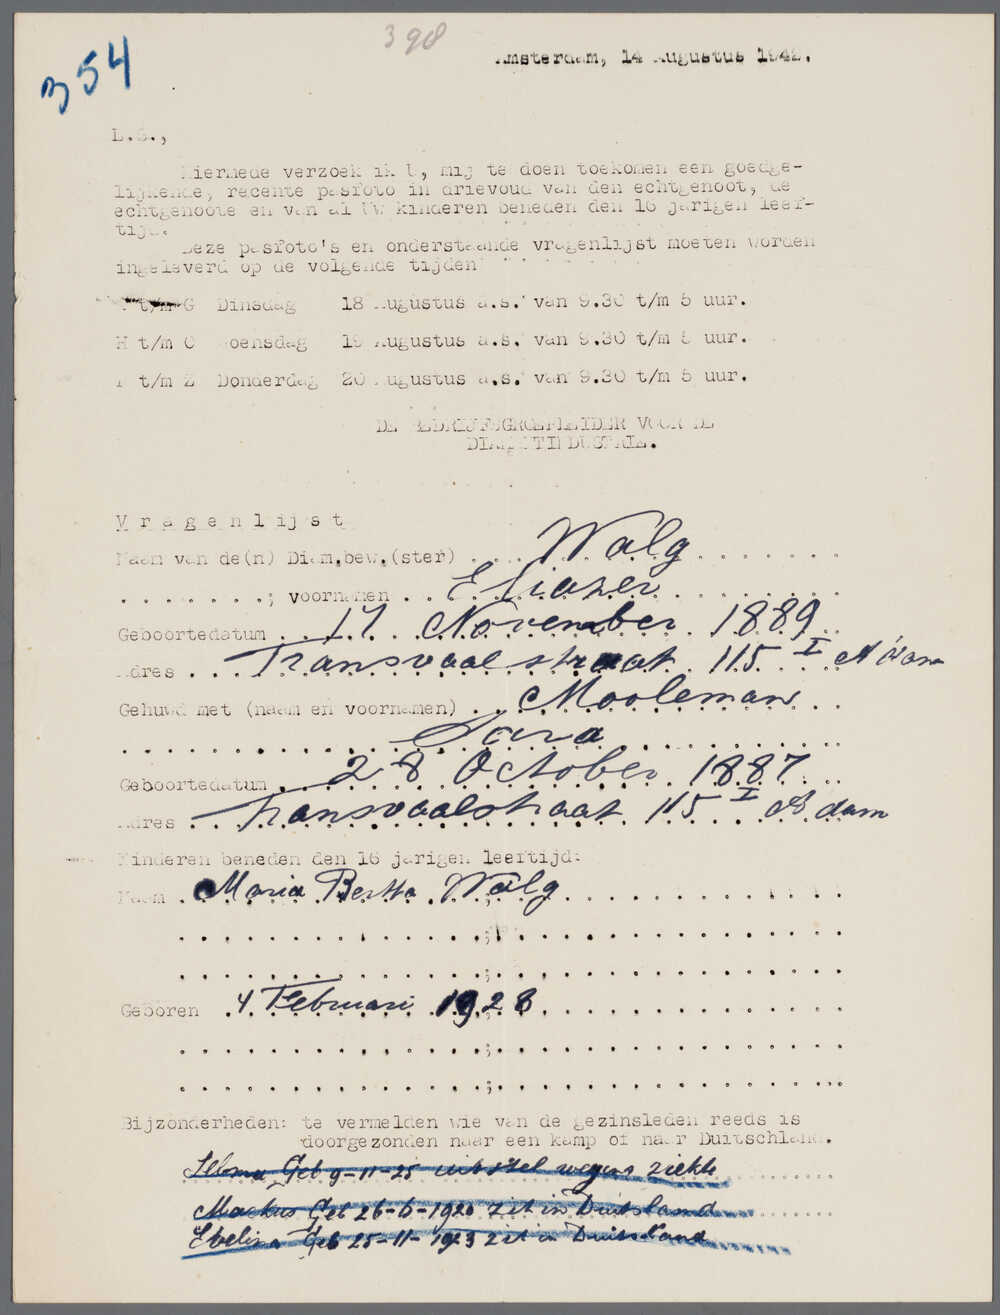 398
354
Amsterdam, 14 Augustus 1942.
L.S.,
Hiermede verzoek ik U, mij te doen toekomen een goedge-
lijkende, recente pasfoto in drievoud van den echtgenoot, de
echtgenoote en van al Uw kinderen beneden den 16 jarigen leef-
tijd.
Deze pasfoto's en onderstaande vragenlijst moeten worden
ingeleverd op de volgende tijden
t/m G Dinsdag 18 Augustus a.s. van 9.30 t/m 5 uur.
H t/m O Woensdag 19 Augustus a.s. van 9.30 t/m 5 uur.
P t/m Z Donderdag 20 Augustus a.s. van 9.30 t/m 5 uur.
DE BEDRIJFSGROEPLEIDER VOOR DE
DIAMANTINDUSTRIE.
Vragenlijst
Naam van de(n) Diam.bew.(ster) . . . Walg . . . . . . .
. . . . . . . .; voornamen . . Eliazer . . . . . . . .
Geboortedatum . . 17 November 1889 . .
Adres . . . Transvaalstraat 115 I A'dam
Gehuwd met (naam en voornamen) . . Mooleman . .
Sara
Geboortedatum 28 October 1887 . .
Adres . . Transvaalstraat 115 I A'dam
Kinderen beneden den 16 jarigen leeftijd:
Naam . Maria Bertha Walg . . . . . . . . . . . .
Geboren . 4 Februari 1928 . . . . . . . . . . . .
Bijzonderheden: te vermelden wie van de gezinsleden reeds is
doorgezonden naar een kamp of naar Duitschland.
Geb 9-11-25 uitstel wegens ziekte
Markus Geb 26-6-1920 zit in Duitsland
Evelina Geb 25-11-1923 zit in Duitsland